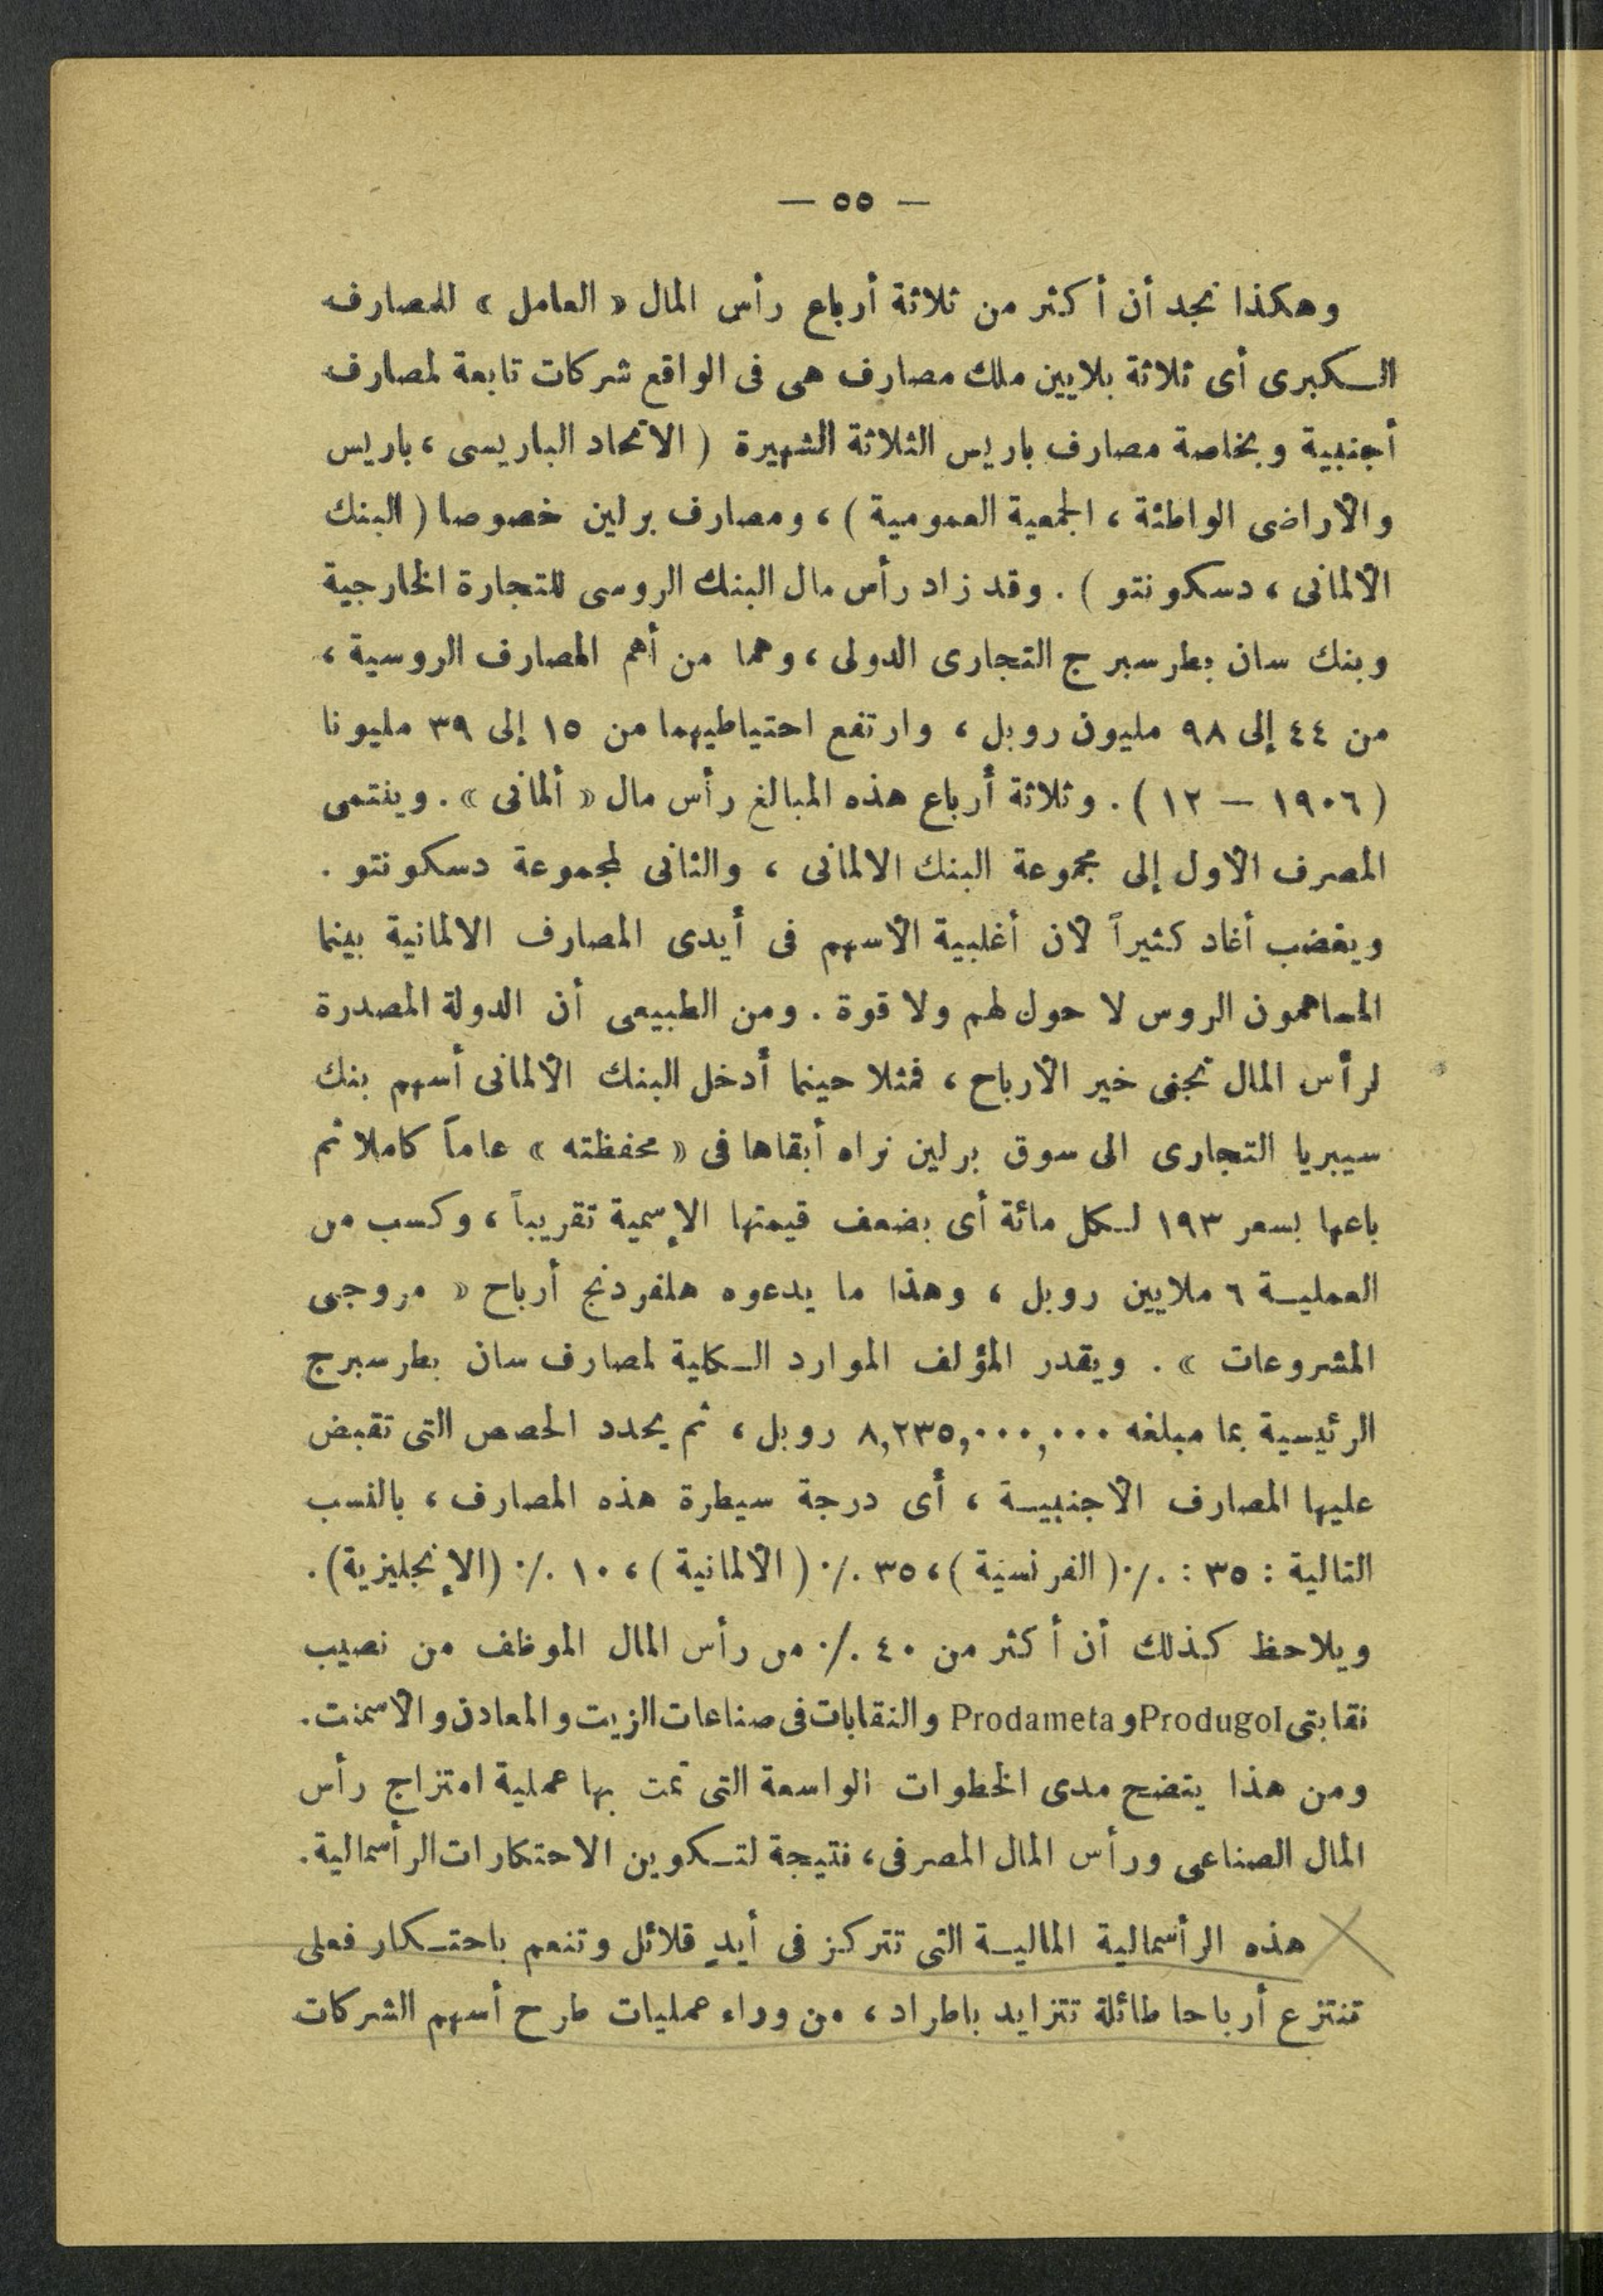 — ٥٥ —
وهكذا نجد أن أكثر من ثلاثة أرباع رأس المال « العامل » للمصارف
الكبرى أى ثلاثة بلايين ملك مصارف هى فى الواقع شركات تابعة لمصارف
أجنبية وبخاصة مصارف باريس الثلاثة الشهيرة ( الاتحاد الباريسى ، باريس
والأراضى الواطئة ، الجمعية العمومية ) ، ومصارف برلين خصوصا ( البنك
الألمانى ، دسكونتو ) . وقد زاد رأس مال البنك الروسى للتجارة الخارجية
وبنك سان بطرسبرج التجارى الدولى ، وهما من أهم المصارف الروسية ،
من ٤٤ إلى ٩٨ مليون روبل ، وارتفع احتياطيهما من ١٥ إلى ٣٩ مليونا
( ١٩٠٦ — ١٢ ) . وثلاثة أرباع هذه المبالغ رأس مال « ألمانى » . وينتمى
المصرف الأول إلى مجموعة البنك الالمانى ، والثانى لمجموعة دسكونتو .
ويغضب أغاد كثيراً لأن أغلبية الأسهم فى أيدى المصارف الالمانية بينما
المساهمون الروس لا حول لهم ولا قوة . ومن الطبيعى أن الدولة المصدرة
لرأس المال تجنى خير الأرباح ، فمثلا حينما أدخل البنك الألمانى أسهم بنك
سيبريا التجارى الى سوق برلين نراه أبقاها فى « محفظته » عاماً كاملا ثم
باعها بسعر ١٩٣ لكل مائة أى بضعف قيمتها الإسمية تقريباً ، وكسب من
العملية ٦ ملايين روبل ، وهذا ما يدعوه هلفردنج أرباح « مروجى
المشروعات » . ويقدر المؤلف الموارد الكلية لمصارف سان بطرسبرج
الرئيسية بما مبلغه ٨,٢٣٥,٠٠٠,٠٠٠ روبل ، ثم يحدد الحصص التى تقبض
عليها المصارف الأجنبية ، أى درجة سيطرة هذه المصارف ، بالنسب
التالية : ٣٥ : ٪ ( الفرنسية ) ، ٣٥ ٪ ( الألمانية ) ، ١٠ ٪ (الإنجليزية) .
ويلاحظ كذلك أن أكثر من ٤٠ ٪ من رأس المال الموظف من نصيب
نقابتى Produgol و Prodameta والنقابات فى صناعات الزيت والمعادن والأسمنت .
ومن هذا يتضح مدى الخطوات الواسعة التى تمت بها عملية امتزاج رأس
المال الصناعى ورأس المال المصرفى ، نتيجة لتكوين الاحتكارات الرأسمالية .
هذه الرأسمالية المالية التى تتركز فى أيدٍ قلائل وتنعم باحتكار فعلى
تنتزع أرباحا طائلة تتزايد باطراد ، من وراء عمليات طرح أسهم الشركات